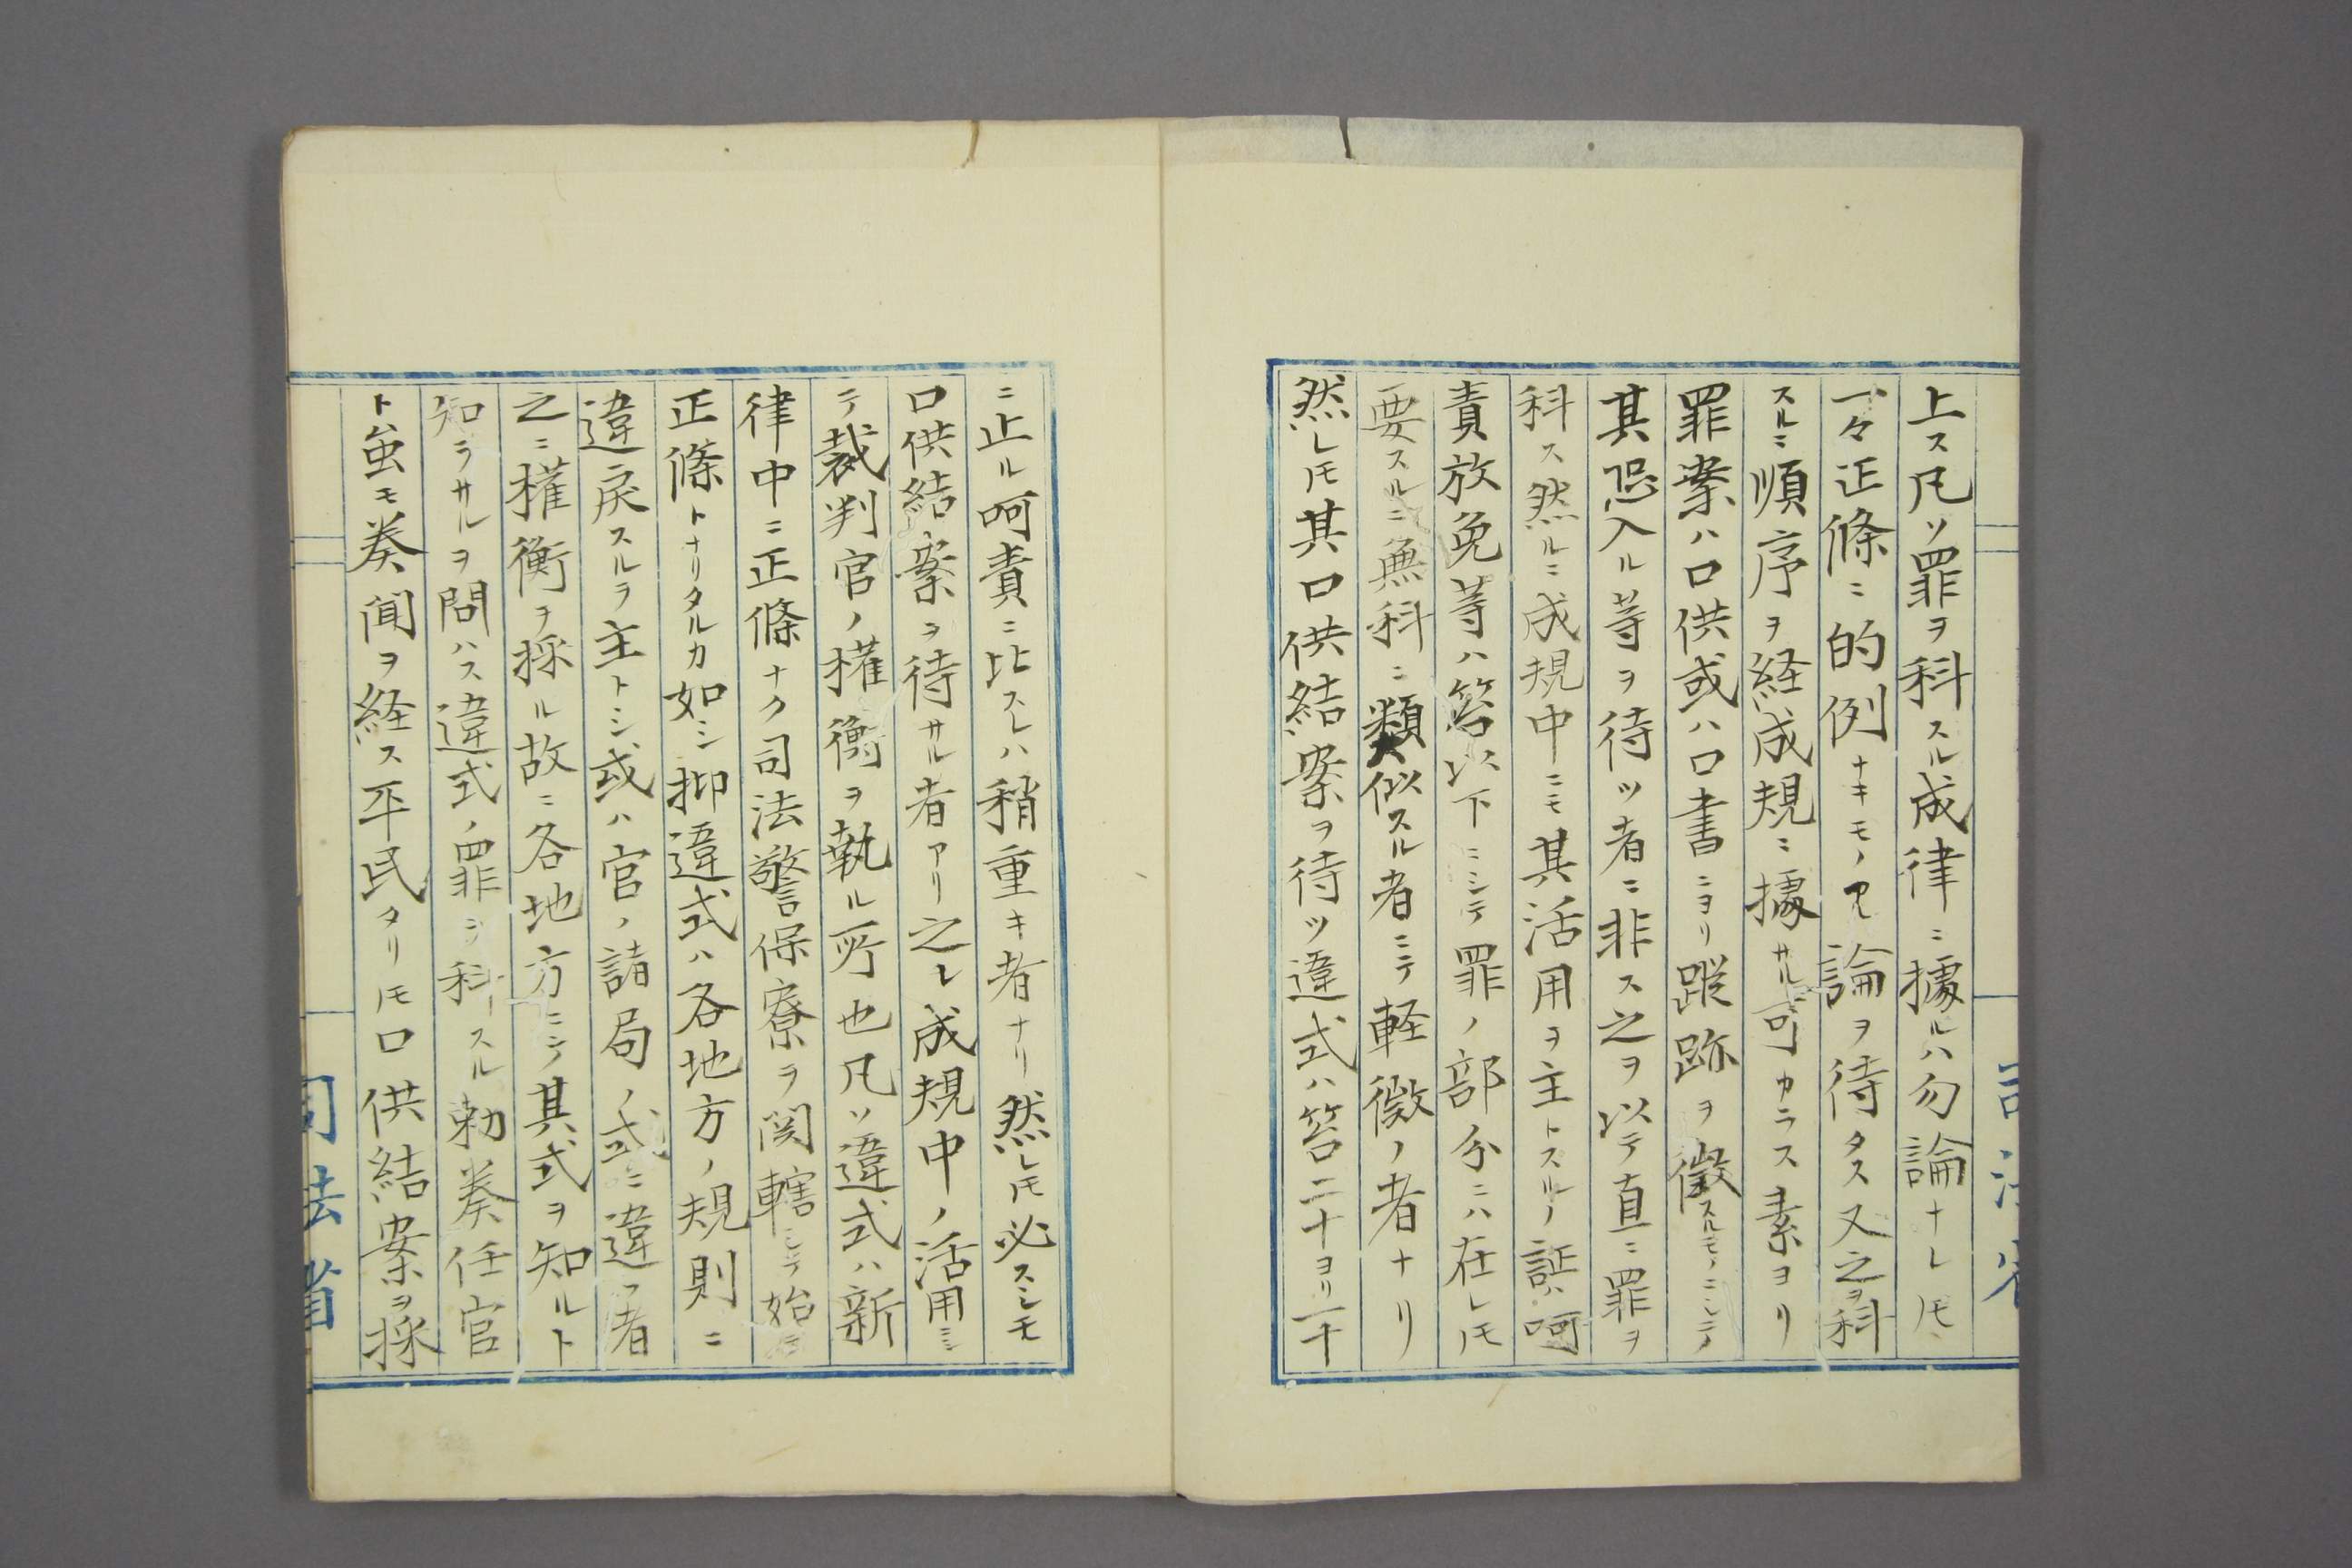 上ス凡ソ罪ヲ科スル成律ニ據ルハ勿論ナレ𪜈
一々正條ニ的例ナキモノ論ヲ待タス又之ヲ科
スルニ順序ヲ経成規ニ據サル可カラス素ヨリ
罪案ハ口供或ハ口書ニヨリ蹤跡ヲ徴スルモノニシテ
其恐入ル等ヲ待ツ者ニ非ス之ヲ以テ直ニ罪ヲ
科ス然ルニ成規中ニモ其活用ヲ主トスルノ証ハ呵
責放免等ハ笞以下ニシテ罪ノ部分ニハ在レ𪜈
要スルニ無科ニ類似スル者ニテ軽微ノ者ナリ
然レ𪜈其口供結案ヲ待ツ違式ハ笞二十ヨリ一十
ニ止ル呵責ニ比スレハ稍重キ者ナリ然レ𪜈必スシモ
口供結案ヲ待サル者アリ之レ成規中ノ活用ニ
テ裁判官ノ權衡ヲ執ル所也凡ソ違式ハ新
律中ニ正條ナク司法警保寮ヲ関轄シテ始テ
正條トナリタルカ如シ抑違式ハ各地方ノ規則ニ
違戻スルヲ主トシ或ハ官ノ諸局ノ式ニ違フ者
之ニ權衡ヲ採ル故ニ各地方ニシテ其式ヲ知ルト
知ラサルヲ問ハス違式ノ罪ヲ科スル勅奏任官
ト虽モ奏聞ヲ経ス平民タリ𪜈口供結案ヲ採
司法省